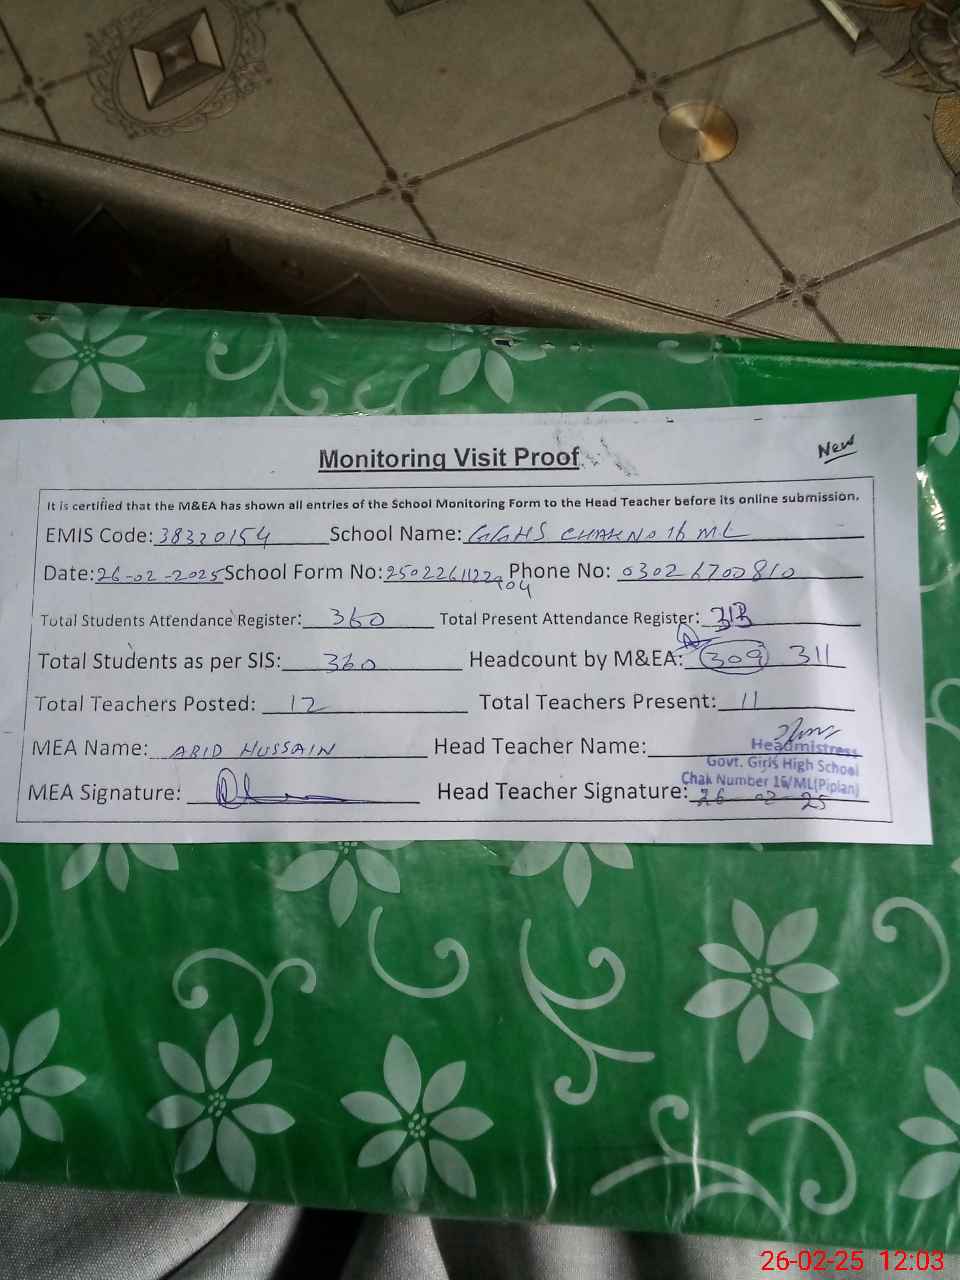 Monitoring Visit Proof
New
It is certified that the M&EA has shown all entries of the School Monitoring Form to the Head Teacher before its online submission.
EMIS Code: 38320154 School Name: GGHS CHAK NO 16 ML
Date: 26-02-2025 School Form No: 2502261122904 Phone No: 03026700810
Total Students Attendance Register: 360 Total Present Attendance Register:
Total Students as per SIS: 360 Headcount by M&EA: 309 311
Total Teachers Posted: 12 Total Teachers Present: 11
MEA Name: ABID HUSSAIN Head Teacher Name:
Headmistress
Govt. Girls High School
Chak Number 16/ML(Piplan)
MEA Signature: Head Teacher Signature: 26 02 25
26-02-25 12:03